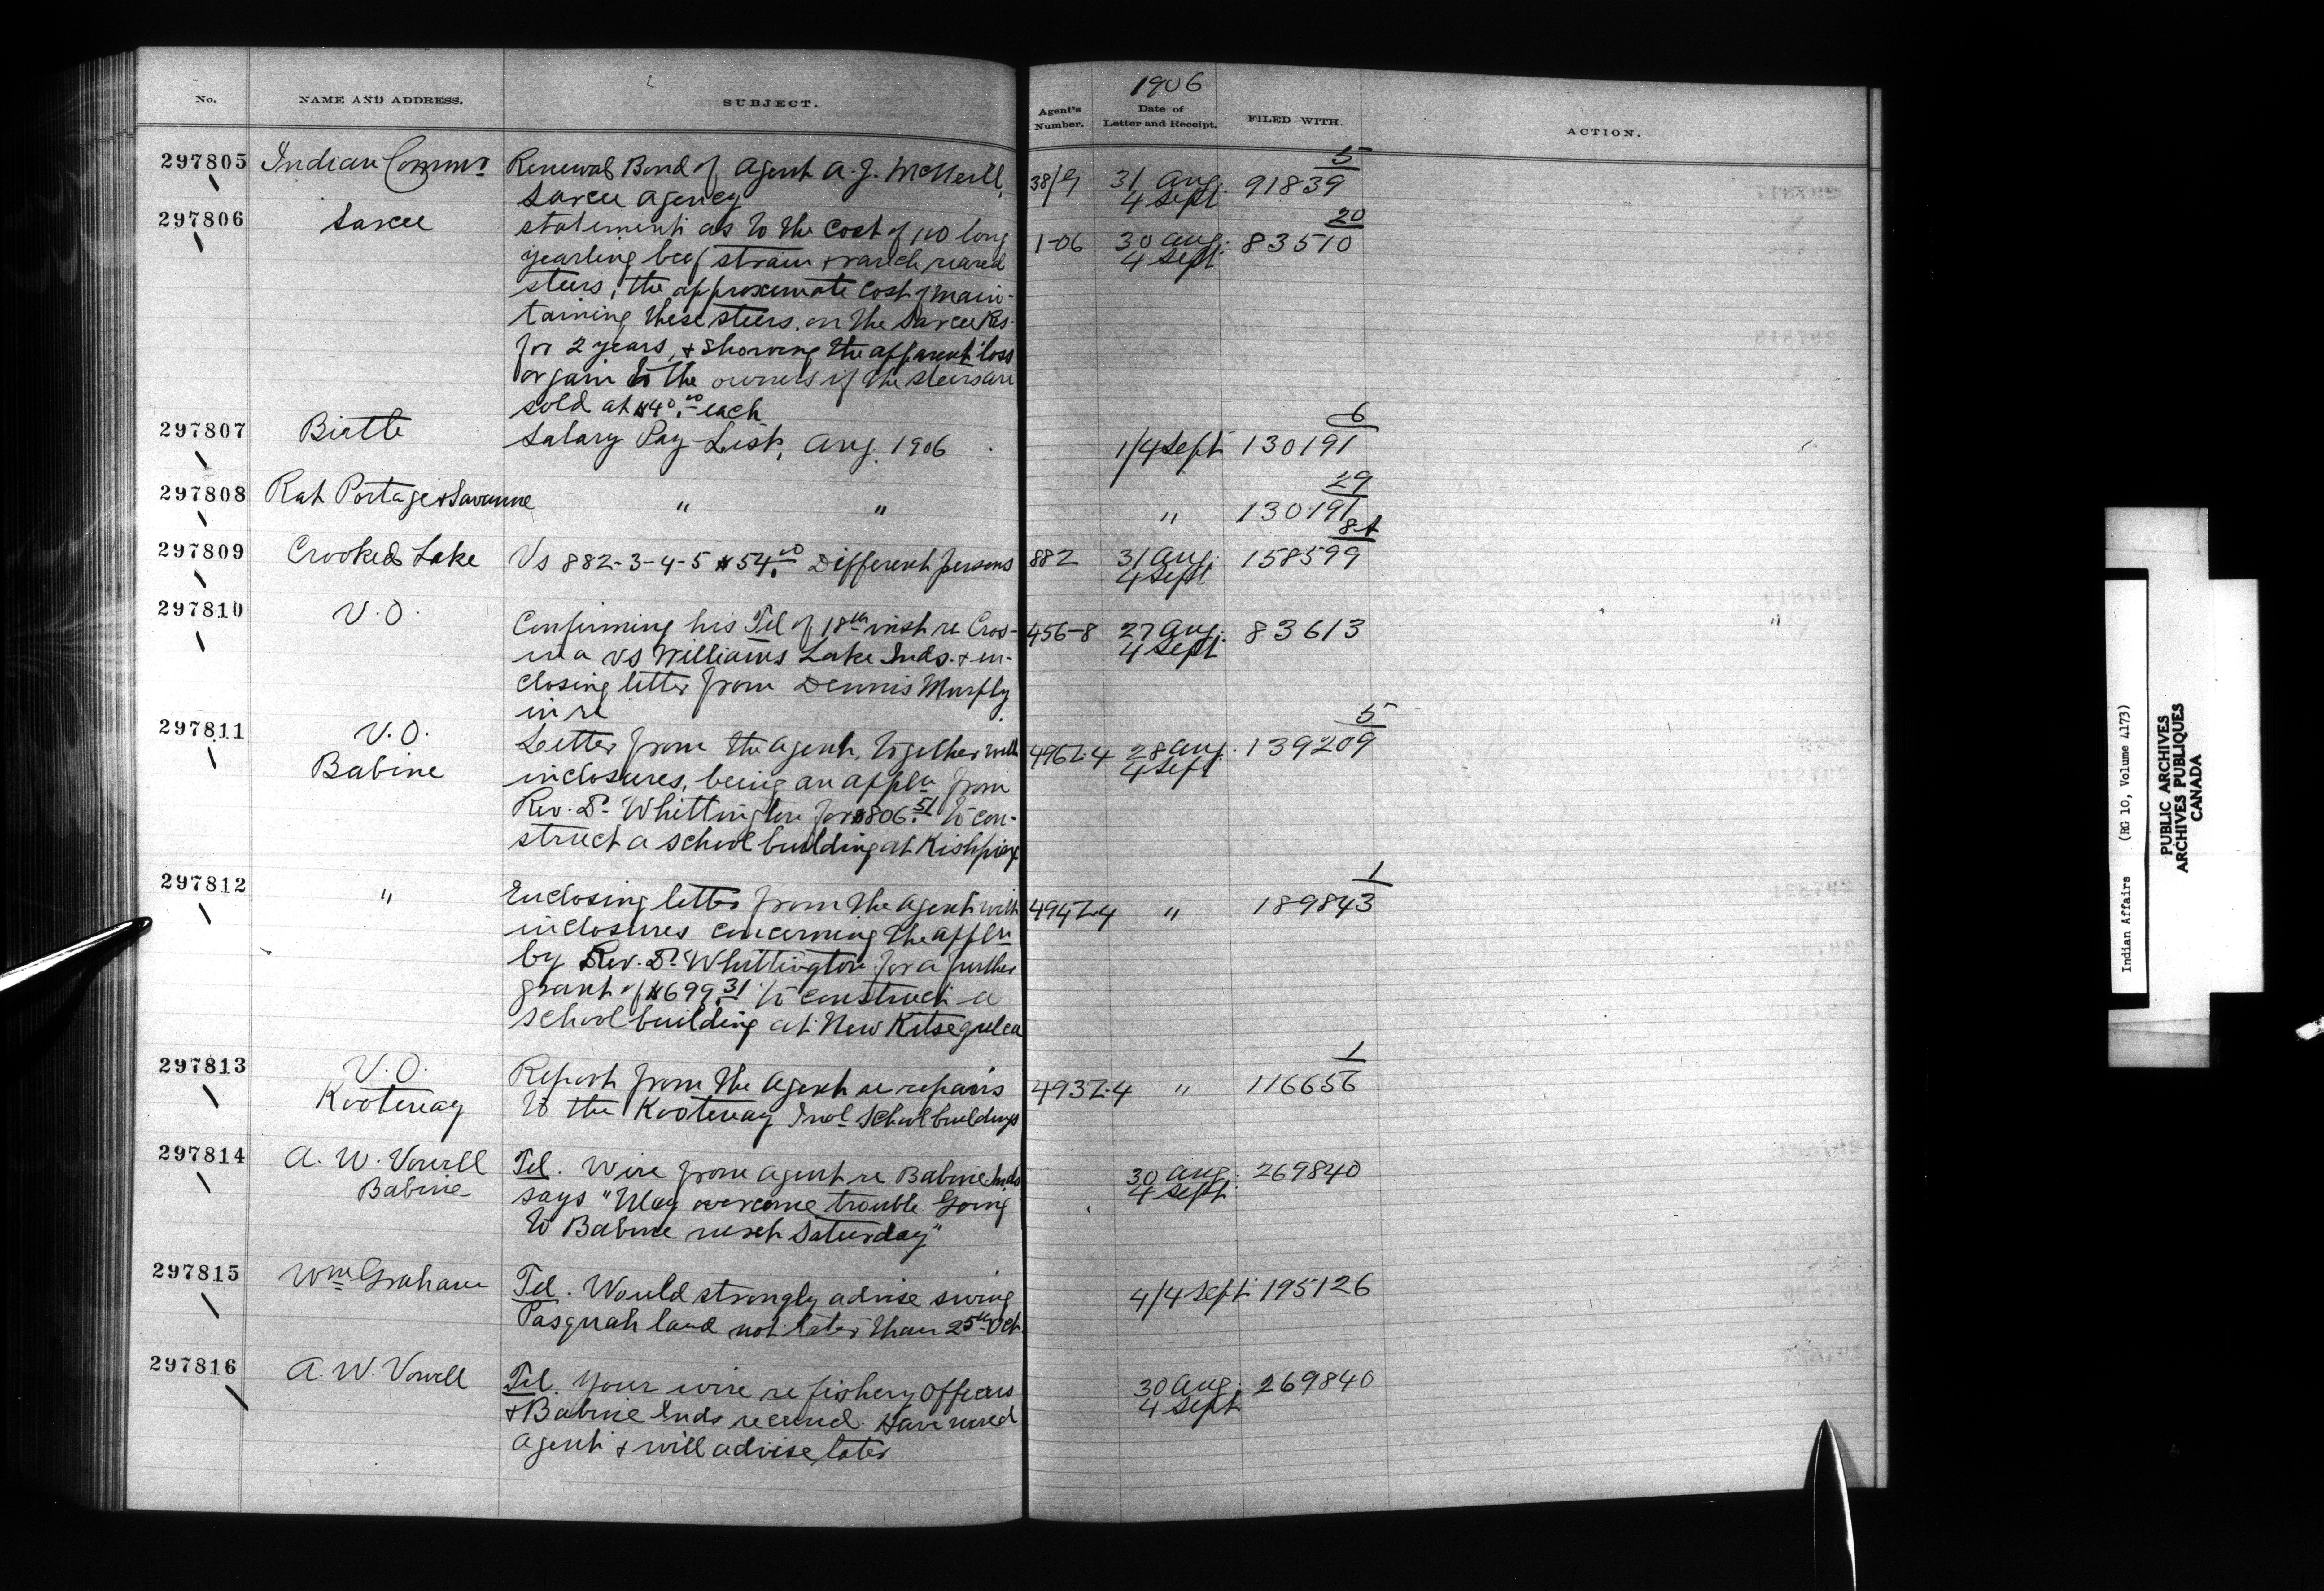 1906
No. NAME AND ADDRESS. SUBJECT. Agent's Number. Date of Letter and Receipt. FILED WITH. ACTION.
297805 Indian Commr Renewal Bond of Agent A. J. McNeill, 38/9 31 Aug. 91839 5
Sarcee Agency 4 Sept
297806 Sarcee statement as to the cost of 110 long 1-06 30 Aug. 83510 20
yearling beef strain & ranch reared 4 Sept
steers, the approximate cost of main-
taining these steers on the Sarcee Res.
for 2 years, & showing the apparent loss
or gain to the owners if the steers are
sold at $40.00 each
297807 Birtle Salary Pay List, Aug. 1906 1/4 Sept 130191 6
297808 Rat Portage & Savanne " " " 130191 29
297809 Crooked Lake Vs 882-3-4-5 $54.00 Different persons 882 31 Aug. 158599
4 Sept
297810 V.O. Confirming his Tel of 18th inst re Cros- 456-8 27 Aug. 83613
ina vs Williams Lake Inds. & en- 4 Sept
closing letter from Dennis Murphy
in re
297811 V.O. Letter from the Agent, together with 496Z.4 28 Aug. 139209 5
Babine inclosures, being an appln from 4 Sept
Rev. Dr. Whittington for $806.51 to con-
struct a school building at Kishpiax
297812 " Enclosing letter from the Agent with 494Z.4 " 189843 1
inclosures concerning the appln
by Rev. Dr. Whittington for a further
grant of $699.31 to construct a
school building at New Kitseguelea
297813 V.O. Report from the Agent re repairs 493Z.4 " 116656 1
Kootenay to the Kootenay Indl School buildings
297814 A. W. Vowell Tel. Wire from agent re Babine Inds 30 Aug. 269840
Babine says "May overcome trouble Going 4 Sept.
to Babine next Saturday"
297815 Wm Graham Tel. Would strongly advise 4/4 Sept. 195126
Pasquah land not later than 25th Oct.
297816 A. W. Vowell Tel. Your wire re fishery Officers 30 Aug. 269840
& Babine Inds received. Have wired 4 Sept
Agent & will advise later
Indian Affairs (RG 10, Volume 4173)
PUBLIC ARCHIVES
ARCHIVES PUBLIQUES
CANADA